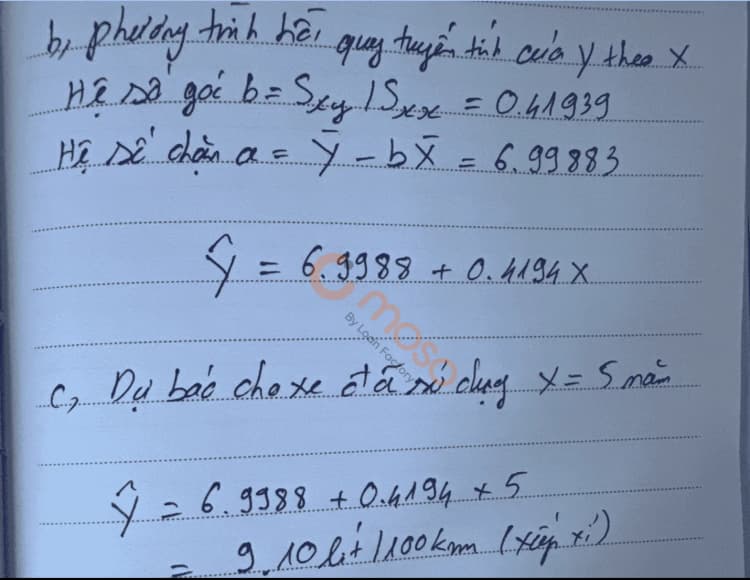 b, phương trình hồi quy tuyến tính của y theo x
Hệ số góc b = Sxy / Sxx = 0.41939
Hệ số chặn a = Ȳ - bX̄ = 6.99883
Ŷ = 6.9988 + 0.4194 x
moso
By Loan Factory
c, Dự báo cho xe đã sử dụng x = 5 năm
Ŷ = 6.9988 + 0.4194 x 5
= 9.10 lít / 100km (xấp xỉ)